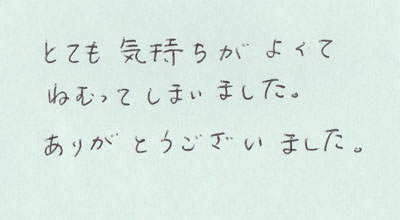 とても気持ちがよくて
ねむってしまいました。
ありがとうございました。